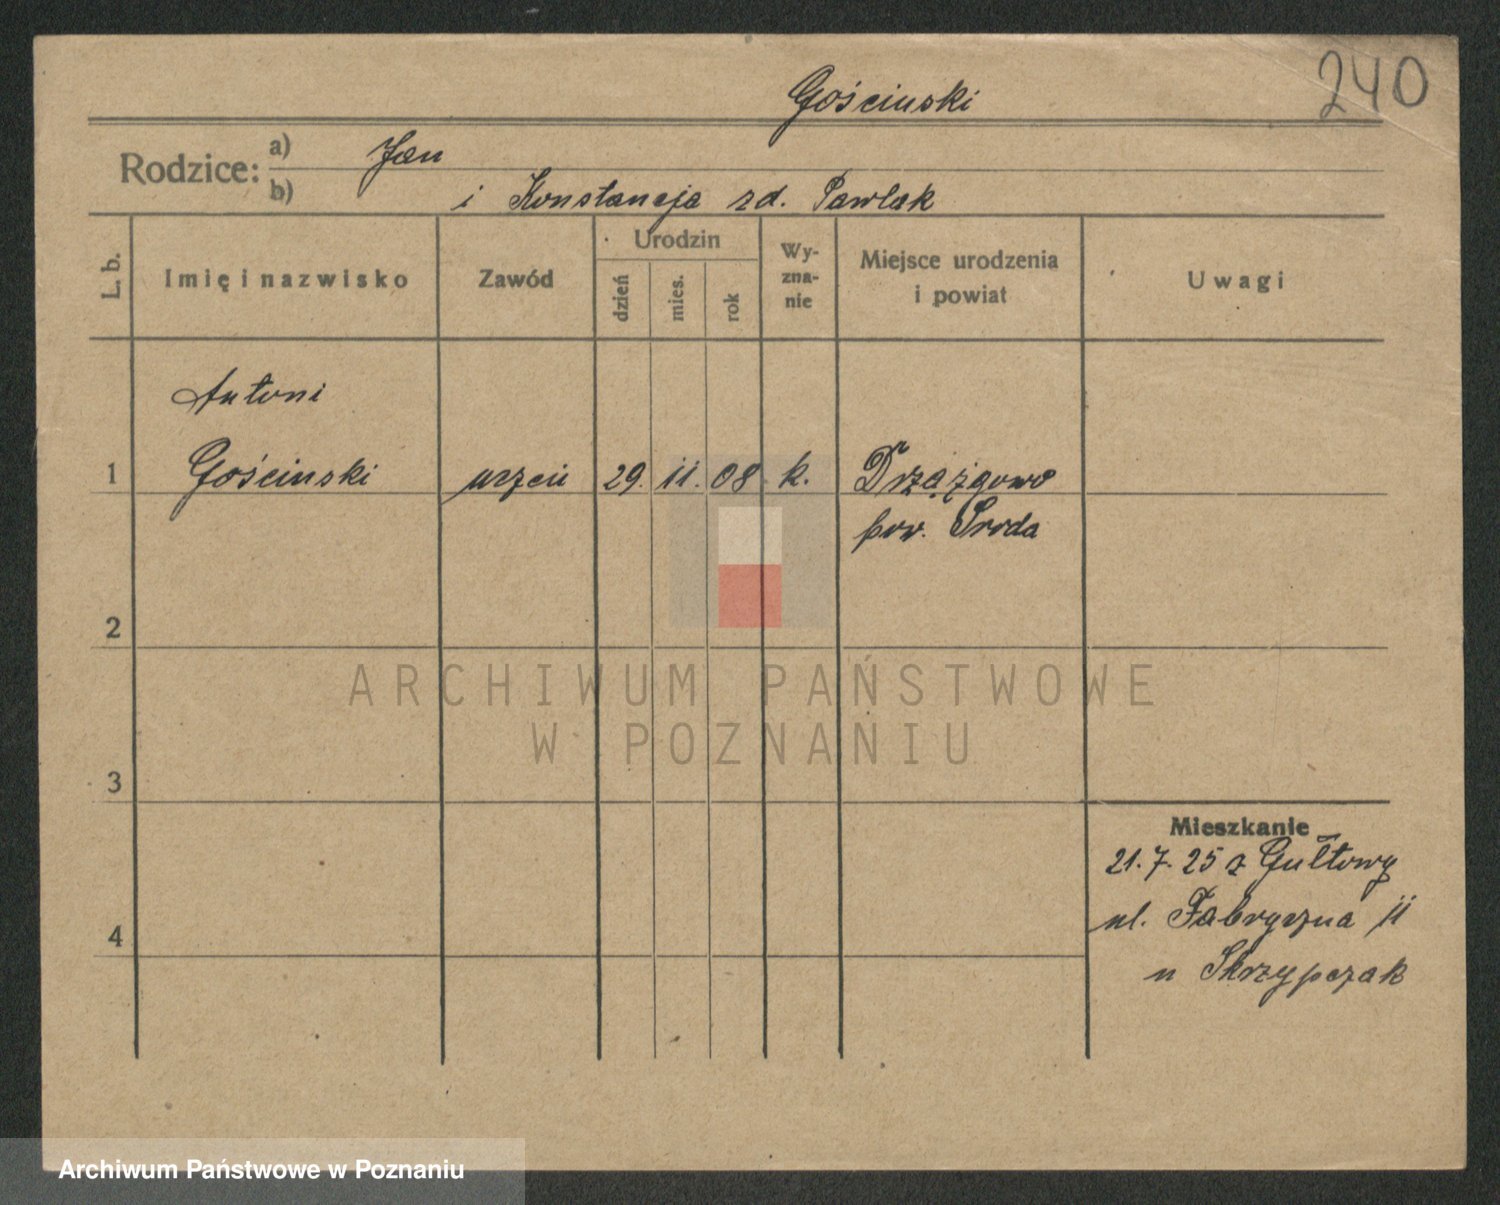 240
Gościnski
Rodzice: a) Jan
b) i Konstancja zd. Pawlak
L. b.
Imię i nazwisko
Zawód
Urodzin
dzień
mies.
rok
Wy-
zna-
nie
Miejsce urodzenia
i powiat
Uwagi
Antoni
1 Gościnski uczeń 29. 11. 08 k. Drzązgowo
pow. Sroda
2
ARCHIWUM PAŃSTWOWE
W POZNANIU
3
Mieszkanie
21. 7. 25 z Gułtowy
4 ul. Fabryczna 11
u Skrzypczak
Archiwum Państwowe w Poznaniu